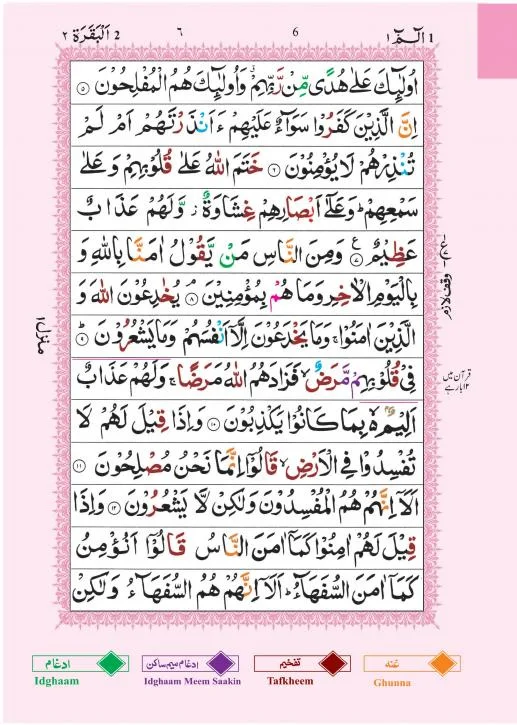 2 اَلْبَقَرَة ٢
٦
6
1 الٓمّٓ ١
اُولٰٓئِكَ عَلٰى هُدًى مِّنْ رَّبِّهِمْ ۗ وَاُولٰٓئِكَ هُمُ الْمُفْلِحُوْنَ ۝٥
اِنَّ الَّذِيْنَ كَفَرُوْا سَوَآءٌ عَلَيْهِمْ ءَاَنْذَرْتَهُمْ اَمْ لَمْ
تُنْذِرْهُمْ لَا يُؤْمِنُوْنَ ۝٦ خَتَمَ اللّٰهُ عَلٰى قُلُوْبِهِمْ وَ عَلٰى
سَمْعِهِمْ ؕ وَعَلٰٓى اَبْصَارِهِمْ غِشَاوَةٌ ز وَّلَهُمْ عَذَابٌ
عَظِيْمٌ ۝٧ ع وَمِنَ النَّاسِ مَنْ يَّقُوْلُ اٰمَنَّا بِاللّٰهِ وَ
بِالْيَوْمِ الْاٰخِرِ وَمَا هُمْ بِمُؤْمِنِيْنَ ۝٨ م يُخٰدِعُوْنَ اللّٰهَ وَ
الَّذِيْنَ اٰمَنُوْا ۚ وَمَا يَخْدَعُوْنَ اِلَّآ اَنْفُسَهُمْ وَمَا يَشْعُرُوْنَ ۝٩ ؕ
فِيْ قُلُوْبِهِمْ مَّرَضٌ ۙ فَزَادَهُمُ اللّٰهُ مَرَضًا ۚ وَلَهُمْ عَذَابٌ
اَلِيْمٌ ۢ ۙ بِمَا كَانُوْا يَكْذِبُوْنَ ۝١٠ وَاِذَا قِيْلَ لَهُمْ لَا
تُفْسِدُوْا فِي الْاَرْضِ ۙ قَالُوْٓا اِنَّمَا نَحْنُ مُصْلِحُوْنَ ۝١١
اَلَآ اِنَّهُمْ هُمُ الْمُفْسِدُوْنَ وَلٰكِنْ لَّا يَشْعُرُوْنَ ۝١٢ وَاِذَا
قِيْلَ لَهُمْ اٰمِنُوْا كَمَآ اٰمَنَ النَّاسُ قَالُوْٓا اَنُؤْمِنُ
كَمَآ اٰمَنَ السُّفَهَآءُ ؕ اَلَآ اِنَّهُمْ هُمُ السُّفَهَآءُ وَلٰكِنْ
وقف لازم
قرآن میں
١٢ بار ہے
منزل ١
ادغام
Idghaam
ادغام میم ساکن
Idghaam Meem Saakin
تفخیم
Tafkheem
غنه
Ghunna